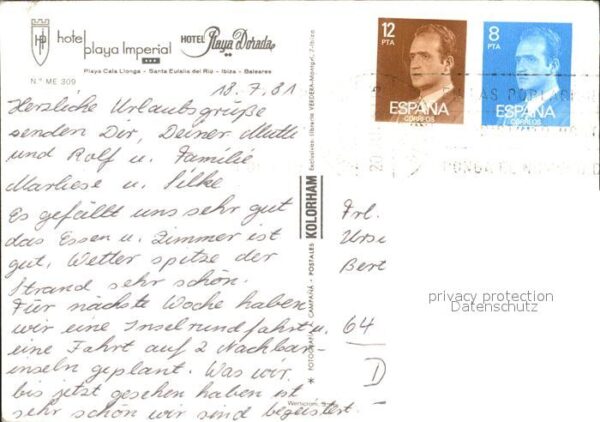 hotel playa Imperial
HOTEL Playa Dorada
Playa Cala Llonga - Santa Eulalia del Rio - Ibiza - Baleares
N.º ME 309
18.7.81
Herzliche Urlaubsgrüße
senden Dir, Deiner Mutti
und Rolf u. Familie
Marliese u. Silke
Es gefällt uns sehr gut
das Essen u. Zimmer ist
gut. Wetter spitze der
Strand sehr schön.
Für nächste Woche haben
wir eine Inselrundfahrt u.
eine Fahrt auf 2 Nachbar-
inseln geplant. Was wir
bis jetzt gesehen haben ist
sehr schön wir sind begeistert.
* FOTOGRAFIA J. CAMPAÑA - POSTALES KOLORHAM
Exclusivas librería VERDERA
12 PTA
ESPAÑA
CORREOS
8 PTA
ESPAÑA
CORREOS
Frl.
Urse
Bert
64
D
privacy protection
Datenschutz